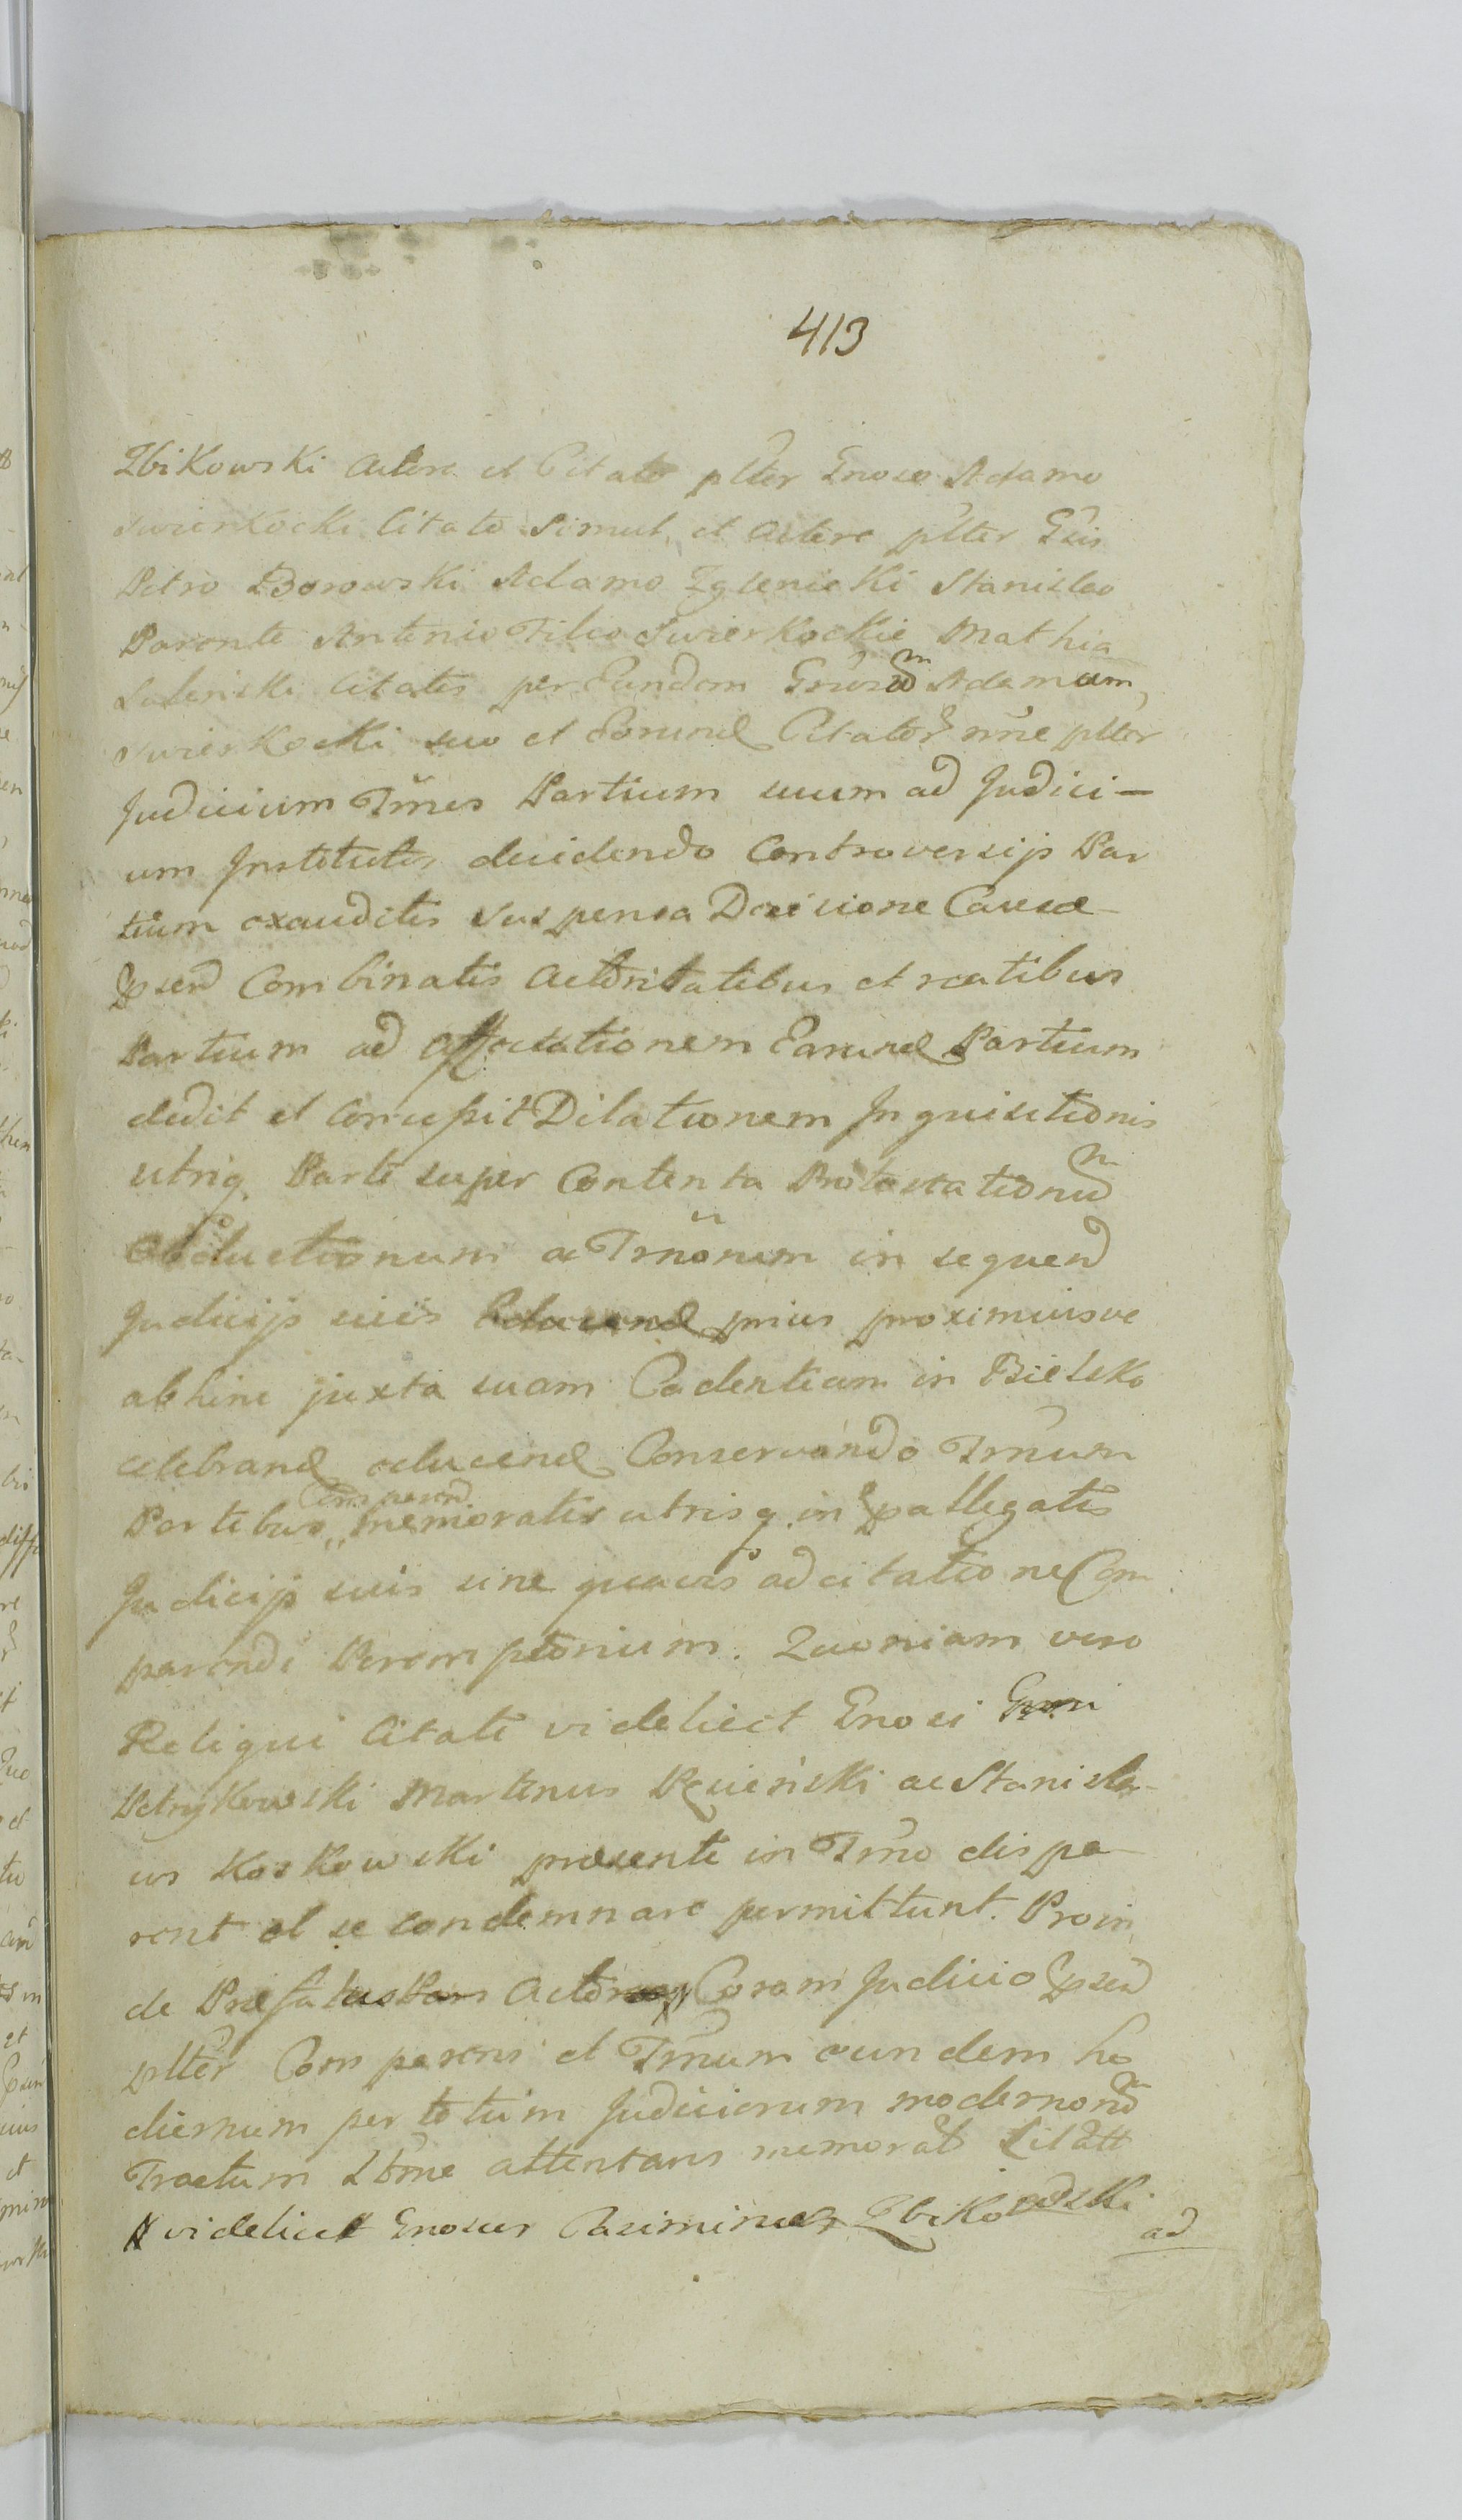 413
Zbikowski Actore et Citato plter Gnoso Adamo
Swierkocki Citato simul et Actore plter Gsis
Petro Borowski Adamo Zglenicki Stanislao
Parente Antonio Filio Swierkockie Mathia
Salenski Citatis per Eundem Gnosum Adamum
Swierkocki suo et Eorund Citator nne plter
Judicium Tmes Partium suum ad Judici-
um Institutis decidendo Controversijs Par
tium exauditis suspensa Decisione Causæ
psend Combinatis Actoritatibus et reatibus
Partium ad affectationem Earund Partium
dedit et concessit Dilationem Inquisitionis
utriq Parti super Contenta Protestationum
Obductionum a Tmorum in sequend
Judicijs suis prius proximiusve
abhinc juxta suam Cadentiam in Bielsko
celebrand educend Conservando Tmum
Partibus Comparend memoratis utrisq in pallegatis
Judicijs suis sine quavis adcitatione Com
parendi Peremptorium. Quoniam vero
Reliqui Citati videlicet Gnosi
Petrykowski Martinus ac Stanisla-
us Koskowski præsenti in Tmo dispa
rent et se condemnare permittunt. Proin
de Præfatus Pars Actorea Coram Judicio psend
plter Comparens et Tmum eundem ho
diernum per totum Judiciorum modernorum
Tractum Ltme attentans memorat Citatt
videlicet Gnosus Casimirus Zbikowski
ad